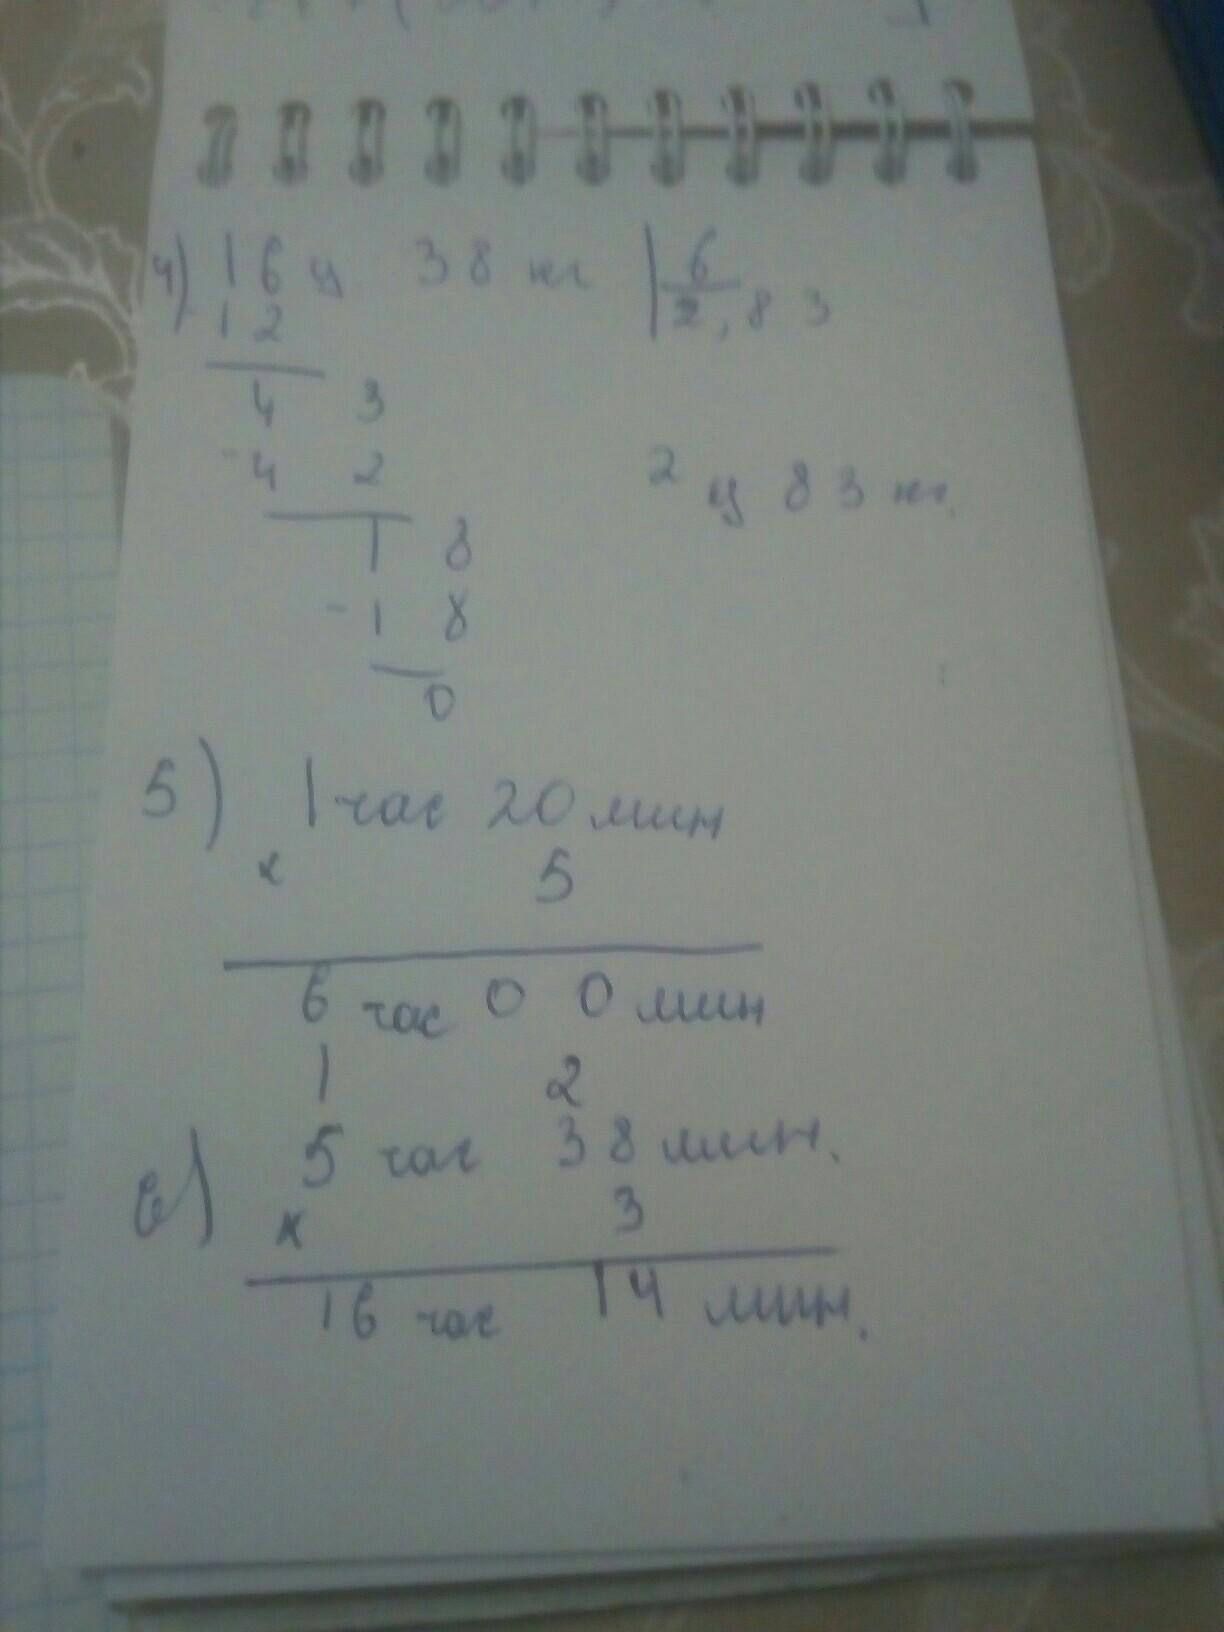 4) 16 ц 38 кг | 6
- 12 2,83
4 3
- 4 2
2 ц 83 кг
1 8
- 1 8
0
5) 1 час 20 мин
x 5
6 час 0 0 мин
1 2
6) 5 час 38 мин.
x 3
16 час 14 мин.